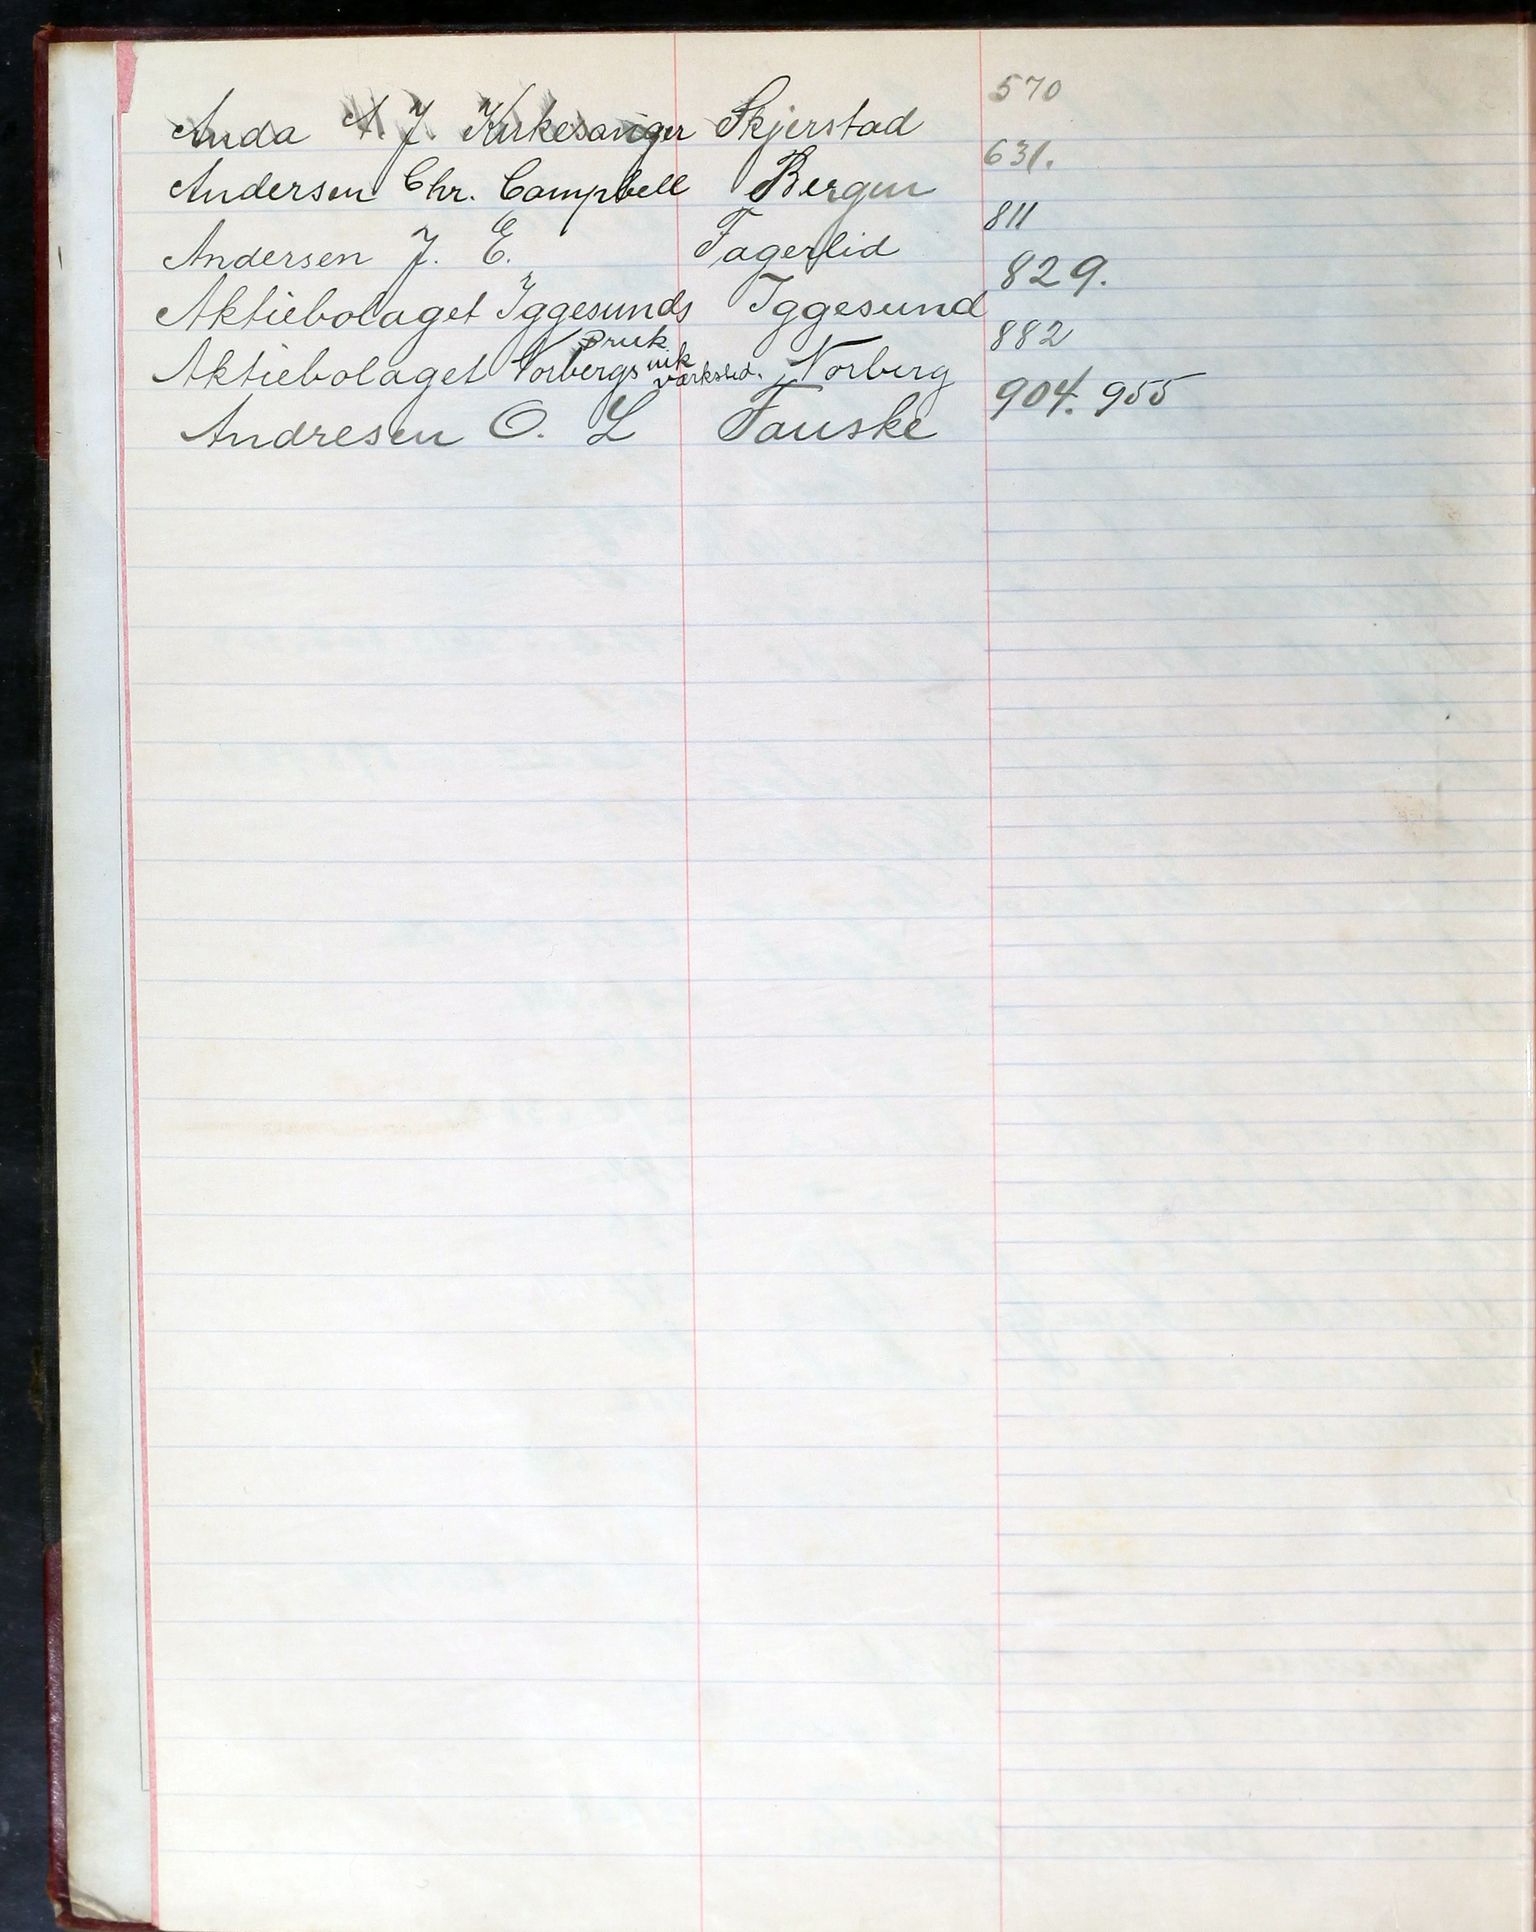 Anda A. J. Kirkesanger Skjerstad 570
Andersen Chr. Campbell Bergen 631.
Andersen J. E. Fagerlid 811
Aktiebolaget Iggesunds Bruk Iggesund 829.
Aktiebolaget Norbergs mek verksted. Norberg 882
Andresen O. L Fauske 904. 955